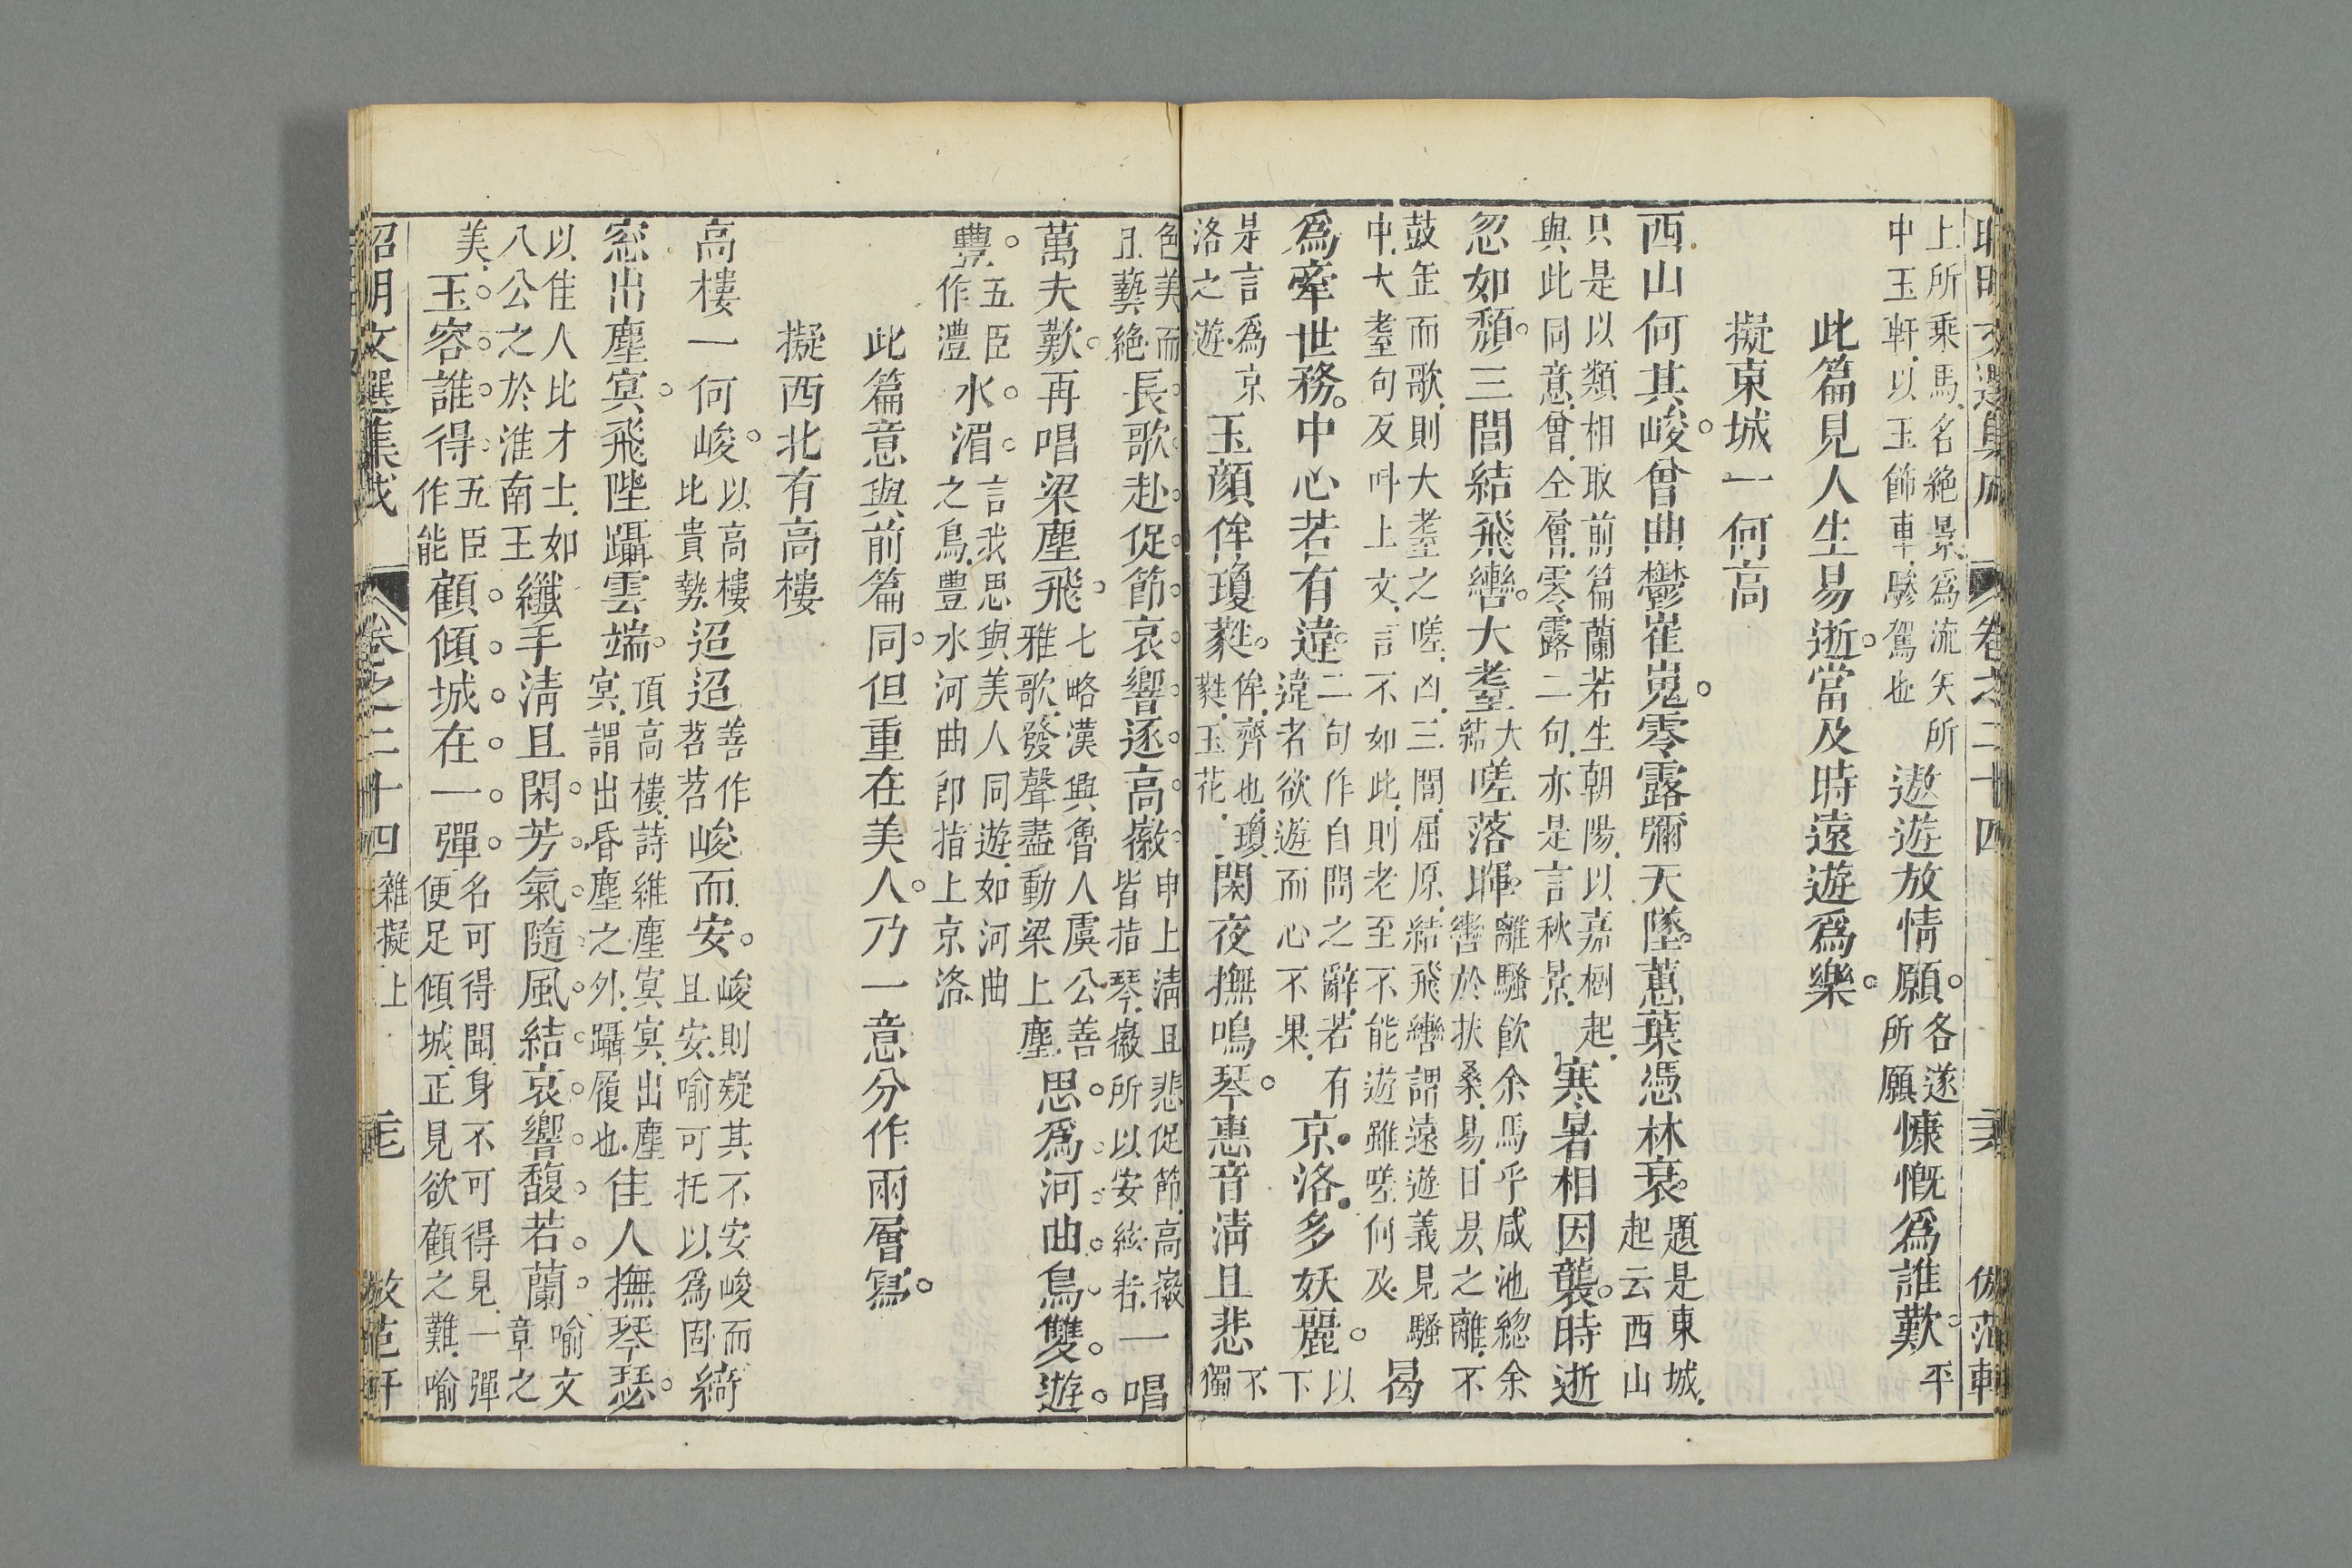 昭明文選集成 卷之二十四 倣范軒
上所乘馬名絕景爲流矢所中玉軒以玉飾車驂駕也遨遊放情願。各遂所願慷慨爲誰歎。平
此篇見人生易逝。當及時遠遊爲樂。
擬東城一何高
西山何其峻。曾曲鬱崔嵬。零露彌天墜。蕙葉憑林衰。題是東城起云西山
只是以類相取前篇蘭若生朝陽以嘉樹起與此同意曾仝層零露二句亦是言秋景寒暑相因襲。時逝
忽如頽。三閭結飛轡。大耋大結嗟落暉。離騷飲余馬乎咸池緫余轡於扶桑易日昃之離不
鼓缶而歌則大耋之嗟凶三閭屈原結飛轡謂遠遊義見騷中大耋句反呌上文言不如此則老至不能遊雖嗟何及曷
爲牽世務。中心若有違。二句作自問之辭若有違者欲遊而心不果京洛多妖麗。以下
是言爲京洛之遊玉顔侔瓊蕤。侔齊也瓊蕤玉花閑夜撫鳴琴。惠音淸且悲不獨
色美而且藝絕長歌赴促節。哀響逐高徽。申上淸且悲促節高徽皆指琴徽所以安絃者一唱
萬夫歎。再唱梁塵飛。七略漢興魯人虞公善雅歌發聲盡動梁上塵思爲河曲鳥雙遊
豐五臣作澧水湄。言我思與美人同遊如河曲之鳥豐水河曲卽指上京洛
此篇意與前篇同。但重在美人。乃一意分作兩層寫。
擬西北有高樓
高樓一何峻。以高樓比貴勢迢迢善作苕苕峻而安。峻則疑其不安峻而且安喻可托以爲固綺
窓出塵冥。飛陛躡雲端。頂高樓詩維塵冥冥出塵冥謂出昏塵之外躡履也佳人撫琴瑟。
以佳人比才士如八公之於淮南王纖手淸且閑。芳氣隨風結。哀響馥若蘭。喻文章之
美玉容誰得五臣作能顧傾城在一彈。名可得聞身不可得見一彈便足傾城正見欲顧之難喻
昭明文選集成 卷之二十四 雜擬上 倣范軒